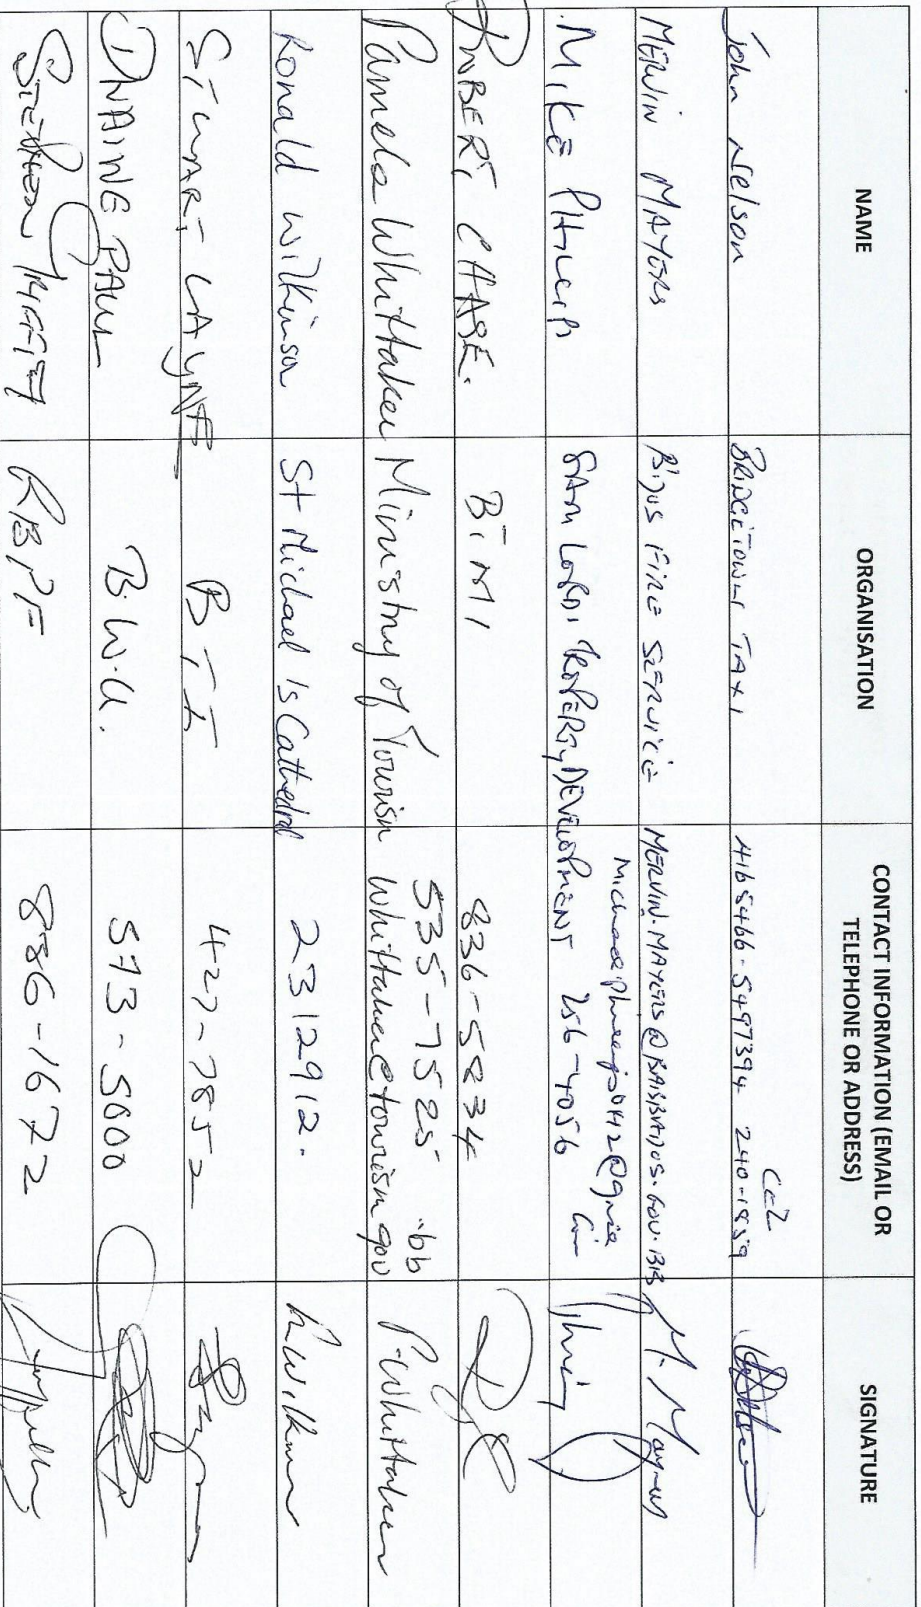 NAME ORGANISATION CONTACT INFORMATION (EMAIL OR TELEPHONE OR ADDRESS) SIGNATURE
John Nelson BRIDGETOWN TAXI 240-1859 Cel
MERVIN MAYERS B'DOS FIRE SERVICE MERVIN.MAYERS@BARBADOS.GOV.BB M. Mayers
MIKE PHILLIPS SAM LORDS PROPERTY DEVELOPMENT 256-4056
ROBERT CHASE. BIMI 836-5834
Pamela Whittaker Ministry of Tourism 535-7525 whittaker@tourism.gov.bb P. Whittaker
Ronald Wilkinson St Michael's Cathedral 2312912. R Wilkinson
STUART LAYNE 427-7852
DWAINE PAUL B.W.U. 573-5000
RBPF 886-1672